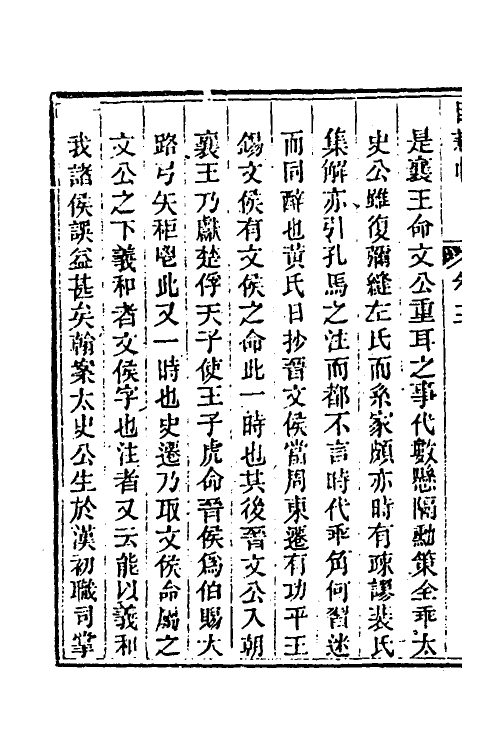 是襄王命文公重耳之事代數懸隔勳策全乖太
史公雖復彌縫左氏而系家頗亦時有疎謬裴氏
集解亦引孔馬之注而都不言時代乖角何習迷
而同醉也黃氏日抄晉文侯當周東遷有功平王
錫文侯有文侯之命此一時也其後晉文公入朝
襄王乃獻楚俘天子使王子虎命晉侯爲伯賜大
路弓矢秬鬯此又一時也史遷乃取文侯命屬之
文公之下義和者文侯字也注者又云能以義和
我諸侯誤益甚矣翰案太史公生於漢初職司筆